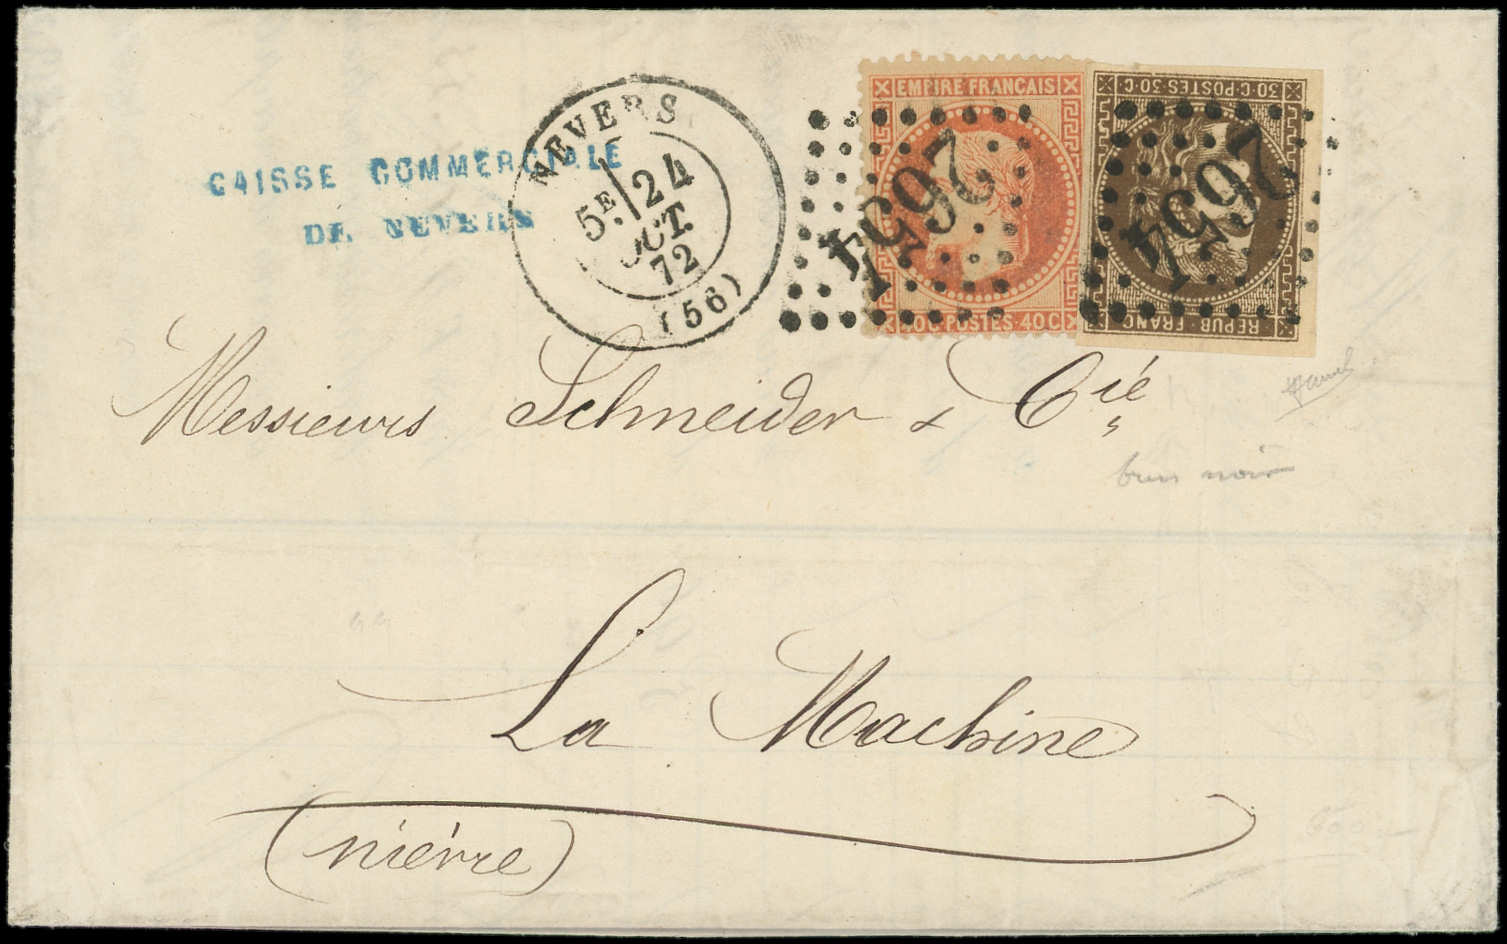 CAISSE COMMERCIALE
DE NEVERS
NEVERS
5E 24
OCT.
72
(56)
EMPIRE FRANÇAIS
2654
40C POSTES 40C
30·C·POSTES 30·C·
2654
REPUB·FRANC
Messieurs Schneider & Cie
brun noir
La Machine
(nièvre)